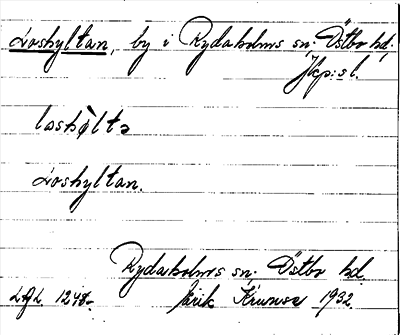 Loshyltan, by i Rydaholms sn; Östbo hd;
Jkp:s l.
loshỳlta
Loshyltan.
Rydaholms sn; Östbo hd
LGL 1248. Erik 1932.